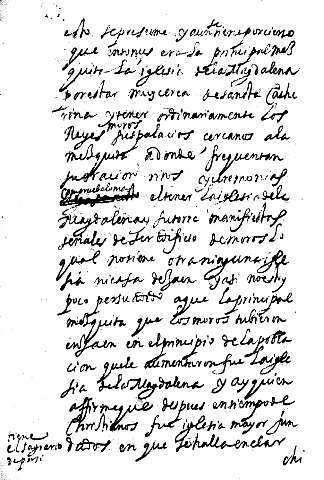 esto se presume y aun se tiene por cierto
que entonces era la principal mez
quita la iglesia de la Magdalena
por estar muy cerca de santa Cathe
rina y tener ordinariamente los
Reyes moros sus palacios cercanos a la
mezquita a donde frequentan
su oracion ritos y ceremonias
el tener la iglesia de la
Magdalena y su torre manifiestas
señales de ser edificio de moros lo
qual no tiene otra ninguna igle
sia de Jaen y asi no estoy
poco persuadido a que la principal
mezquita que los moros tubieron
en Jaen en el principio de la pobla
cion que le aumentaron fue la igle
sia de la Magdalena y ay quien
affirme que despues en tiempo de
Christianos fue iglesia mayor fun
dados en que se halla en clar
chi
tiene
el sagrario
de por si